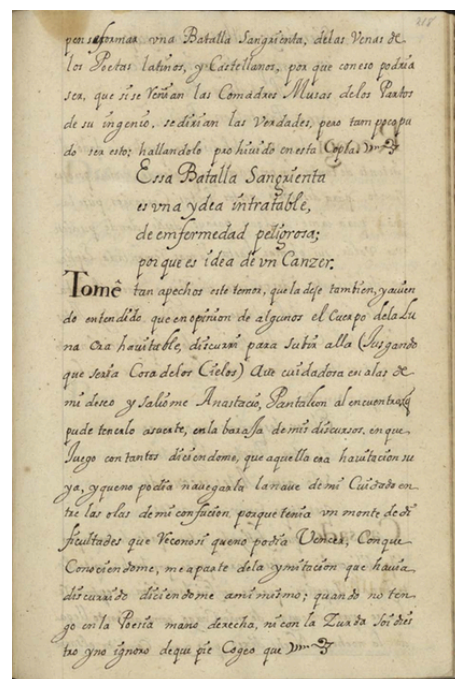 218
pense formar vna Batalla Sangrienta, delas Venas de
los Poetas latinos, y Castellanos, por que con eso podria
ser, que si se Venian las Comadres Musas delos Partos
de su ingenio, se dirian las Verdades, pero tam poco pu
do ser esto; hallandolo pro hiuido en esta Copla.
Essa Batalla Sangrienta
es vna ydea intratable,
de emfermedad peligrosa;
por que es idea de vn Canzer.
Tomê tan apechos este temor, que la deje tambien, y auien
do entendido que en opinion de algunos el Cuerpo dela Lu
na era hauitable, discurri para Subir alla (Jusgando
que seria Cosa delos Cielos) Aue cuidadosa en alas de
mi deseo y saliome Anastacio, Pantaleon al encuentro, y
pude tenerlo asuerte, en la baraja de mis discursos, en que
Juego con tantos diciendome, que aquella era hauitacion su
ya, y que no podia nauegarla la naue de mi Cuidado en
tre las olas de mi confucion, porque tenia vn monte de di
ficultades que Reconosi que no podia Vencer, Con que
Conociendome, me aparte dela ymitacion que hauia
discurrido diciendome ami mismo; quando no ten
go en la Poesia mano derecha, ni con la Zurda Soi dies
tro y no ignoro de qui pie Cogeo que